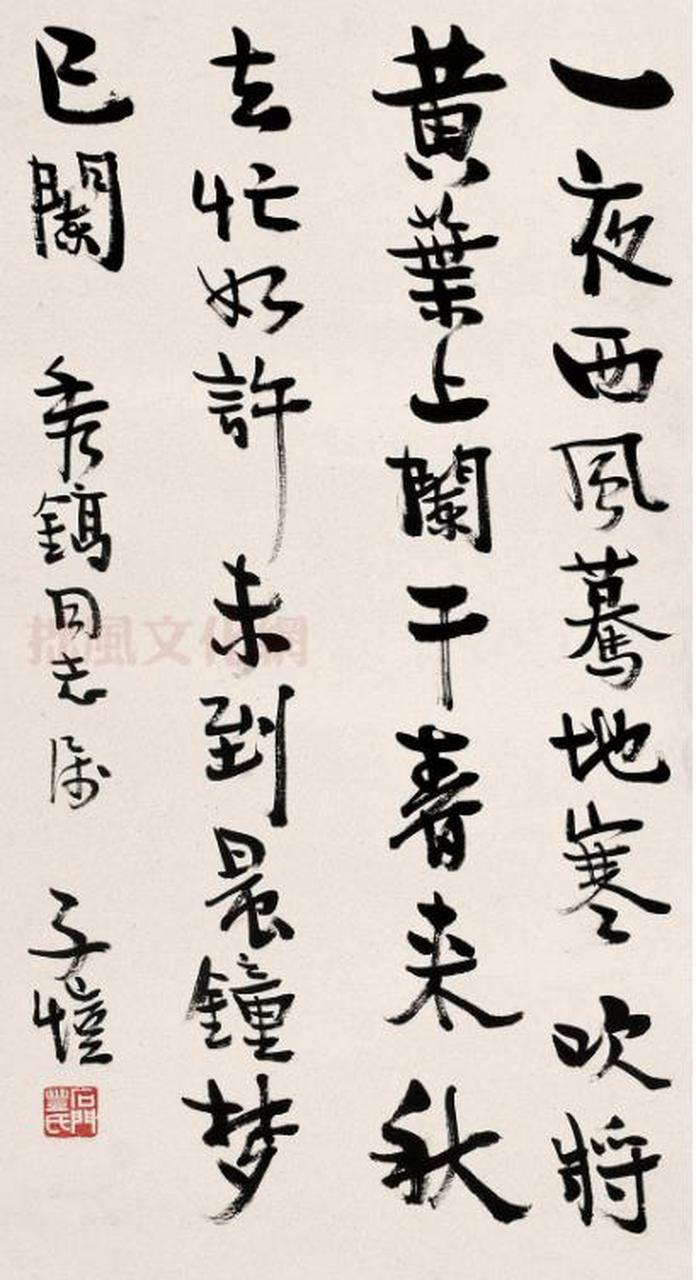 一夜西風驀地寒吹將
黃葉上闌干春来秋
去忙如許未到晨鐘梦
已闌 秀鎬同志属 子愷
石門豐氏